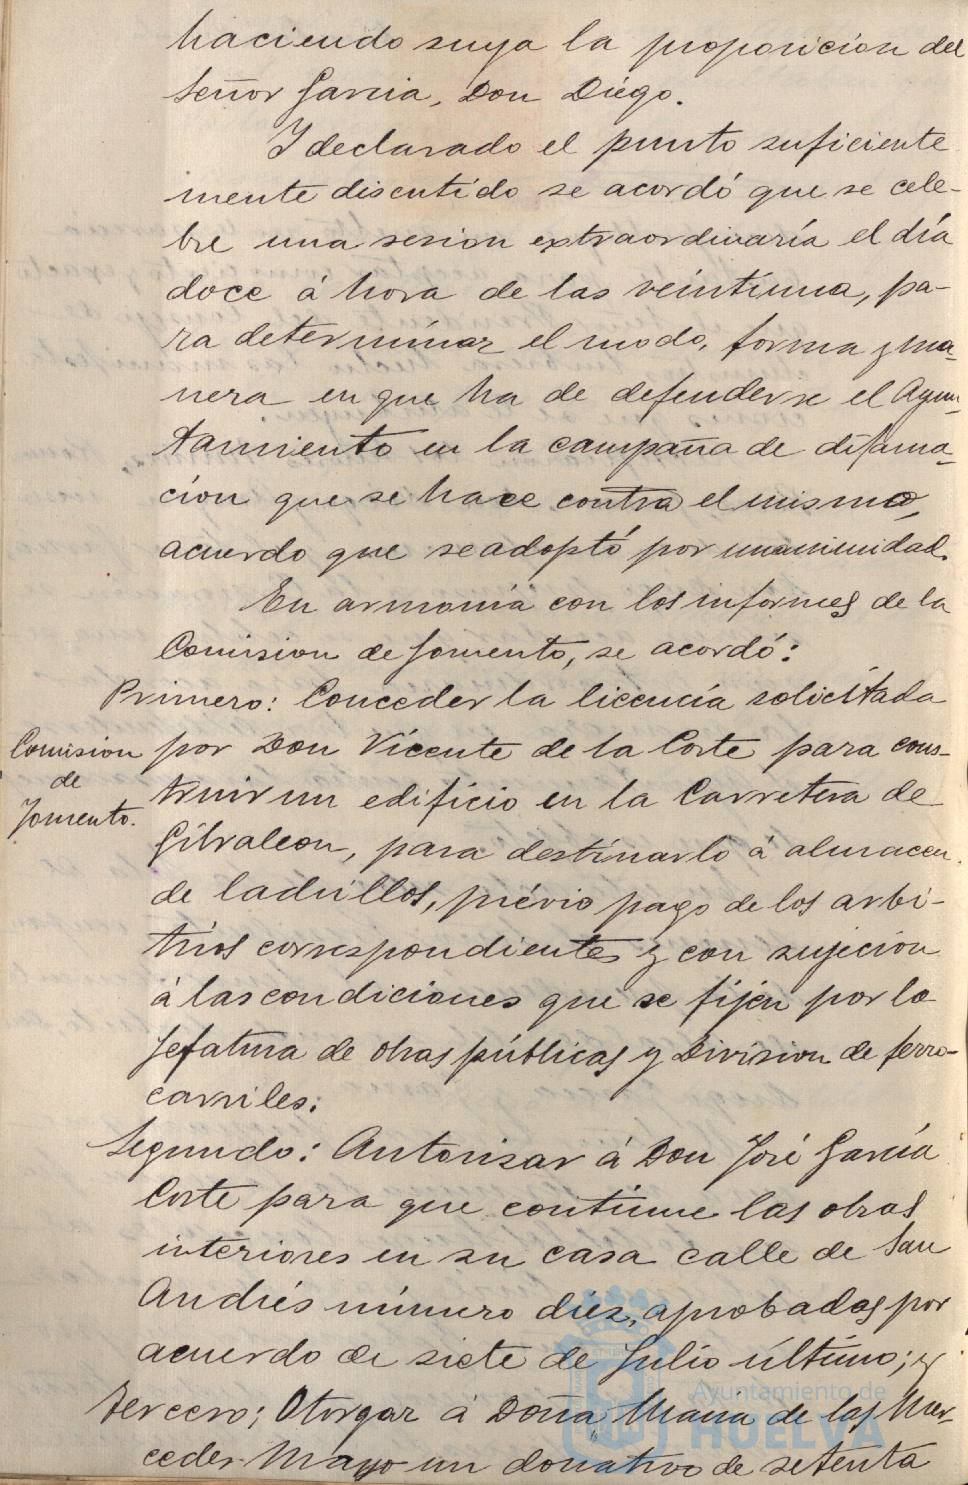 haciendo suya la proposicion del
Señor Garcia, Don Diégo.
Y declarado el punto suficiente
mente discutido se acordó que se cele-
bre una sesion extraordinaría el día
doce á hora de las veintiuna, pa-
ra determinar el modo, forma y ma-
nera en que ha de defenderse el Ayun-
tamiento en la campaña de difama-
cion que se hace contra el mismo,
acuerdo que se adoptó por unanimidad.
En armonia con los informes de la
Comision de fomento, se acordó:
Primero: Conceder la licencia solicitada
Comision
de
Fomento.
por Don Vicente de la Corte para cons-
truir un edificio en la Carretera de
Gibraleon, para destinarlo á almacen
de ladrillos, prévio pago de los arbi-
trios correspondientes y con sujecion
á las condiciones que se fijen por la
Jefatura de obras públicas y Division de ferro-
carriles.
Segundo: Autorizar á Don José García
Corte para que continue las obras
interiores en su casa calle de San
Andrés número diez, aprobadas por
acuerdo de siete de Julio último; y
Tercero; Otorgar á Doña Maria de las Mer-
cedes Mayo un donativo de setenta
Ayuntamiento de
HUELVA